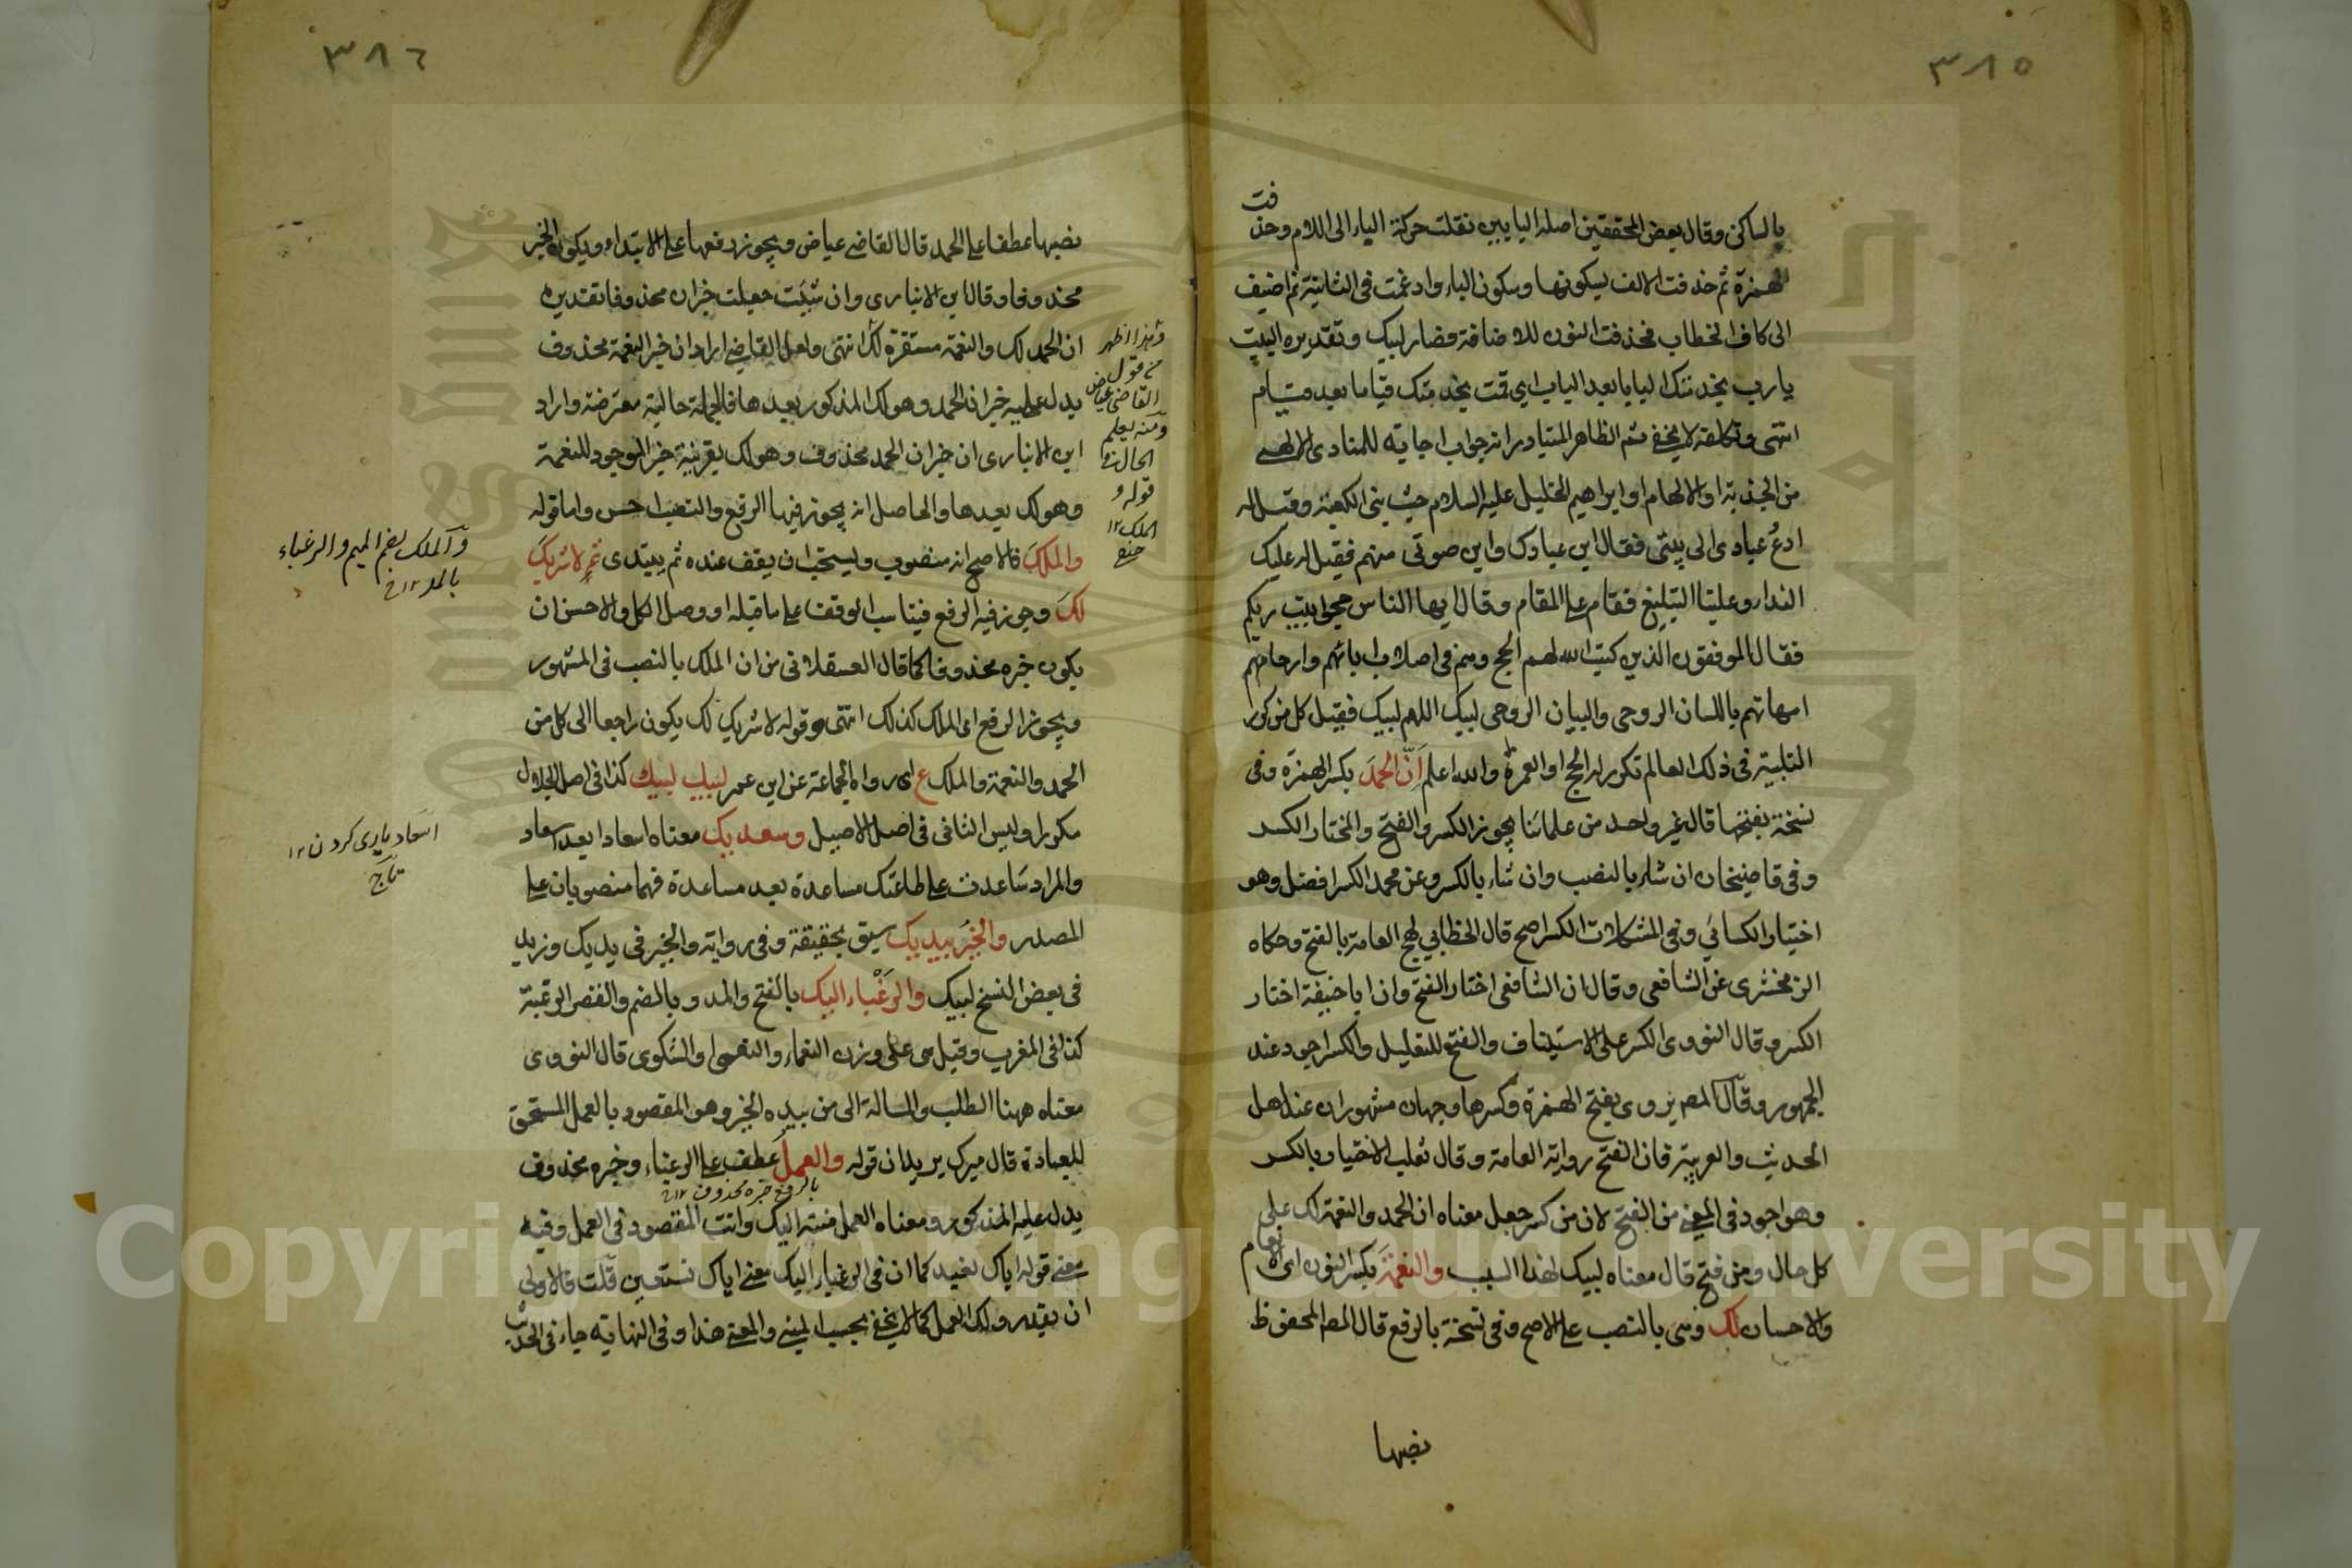 ٣٨٥
بالساكن وقال بعض المحققين اصله البابين نقلت حركة الياء الى اللام وحذفت
الهمزة ثم حذفت الالف لسكونها وسكون الياء وادغمت فى الثانية ثم اضيف
الى كاف الخطاب فحذفت النون للاضافة فصار لبيك وتقديره البيت
يارب بخدمتك البابا بعد الباب اى قمت بخدمتك قياما بعد قيام
انتهى وتكلفه لا يخفى ثم الظاهر المتبادر انه جواب اجابة للمنادى الالهى
من الجذبة او الالهام او ابراهيم الخليل عليه السلام حيث بنى الكعبة وقيل له
ادع عبادى الى بيتى فقال اين عبادك واين صوتى منهم فقيل له عليك
النداء وعلينا التبليغ فقام على المقام وقال ايها الناس حجوا بيت ربكم
فقال الموفقون الذين كتب الله لهم الحج وهم فى اصلاب ابائهم وارحام
امهاتهم باللسان الروحى والبيان الروحى لبيك اللهم لبيك فقيل كل من كرر
التلبية فى ذلك العالم تكرر له الحج او العمرة والله اعلم اَنّ الحمدَ بكسر الهمزة وفى
نسخة بفتحها قال غير واحد من علمائنا يجوز الكسر والفتح والمختار الكسر
وفى قاضيخان ان شاء بالنصب وان شاء بالكسر وعن محمد الكسر افضل وهو
اختيار الكسائي وفى المشكلات الكسر اصح قال الخطابي لهج العامة بالفتح وحكاه
الزمخشرى عن الشافعى وقال ان الشافعى اختار الفتح وان ابا حنيفة اختار
الكسر وقال النووى الكسر على الاستيناف والفتح للتعليل والكسر اجود عند
الجمهور وقال المصم يروى بفتح الهمزة وكسرها وجهان مشهوران عند اهل
الحديث والعربية فان الفتح رواية العامة وقال ثعلب الاختيار بالكسر
وهو اجود فى المعنى من الفتح لان من كسر جعل معناه ان الحمد والنعمة لك على
كل حال ومن فتح قال معناه لبيك لهذا السبب والنعمةَ بكسر النون اى الانعام
والاحسان لك وهى بالنصب على الاصح وفى نسخة بالرفع قال المصم المحفوظ
نصبها
٣٨٦
نصبها عطفا على الحمد قال القاضى عياض ويجوز رفعها على الابتداء ويكون الخبر
محذوفا وقال ابن الانبارى وان شئت جعلت خبر ان محذوفا تقديره
ان الحمد لك والنعمة مستقرة لك انتهى ولعل القاضى اراد ان خبر النعمة محذوف
يدل عليه خبر ان الحمد وهو لك المذكور بعدها فالجملة حالية معترضة واراد
ابن الانبارى ان خبر ان الحمد محذوف وهو لك بقرينة خبر الموجود للنعمة
وهو لك بعدها والحاصل انه يجوز فيها الرفع والنصب احسن واما قوله
والملكَ فالاصح انه منصوب ويستحب ان يقف عنده ثم يبتدى ثم لا شريكَ
لكَ ويجوز فيه الرفع فيناسب الوقف على ما قبله او وصل الكل والاحسن ان
يكون خبره محذوفا كما قال العسقلانى من ان الملك بالنصب فى المشهور
ويجوز الرفع اى الملك كذلك انتهى وقوله لا شريك لك يكون راجعا الى كل من
الحمد والنعمة والملك ع اى رواه الجماعة عن ابن عمر لبيك لبيك كذا فى اصل الجلال
مكررا وليس الثانى فى اصل الاصيل وسعديك معناه اسعادا بعد اسعاد
والمراد ساعدت على طاعتك مساعدة بعد مساعدة فهما منصوبان على
المصدر والخيرُ بيديك سبق تحقيقة وفى رواية والخير فى يديك وزيد
فى بعض النسخ لبيك والرَغْباء اليك بالفتح والمد وبالضم والقصر الرغبة
كذا فى المغرب وقيل هى على وزن النعماء والنعمى والشكوى قال النووى
معناه ههنا الطلب والمسالة الى من بيده الخير وهو المقصود بالعمل المستحق
للعبادة قال ميرك يريد ان قوله والعملُ عطف على الرغباء وخبره محذوف
بالرفع خبره محذوف ١٢
يدل عليه المذكور ومعناه العمل منته اليك وانت المقصود فى العمل وفيه
معنى قوله اياك نعبد كما ان فى الرغباء اليك معنى اياك نستعين قلت فالاولى
ان يقدر ولك العمل كما لا يخفى بحسب المبنى والمعنى هذا وفى النهاية جاء فى الحديث
وهذا اظهر
من قول
القاضى عياض
ومنه يعلم
الحال فى
قوله و
الملك ١٢
والملك بضم الميم والرغباء
بالمد ١٢
اسعاد يارى كردن ١٢
تاج